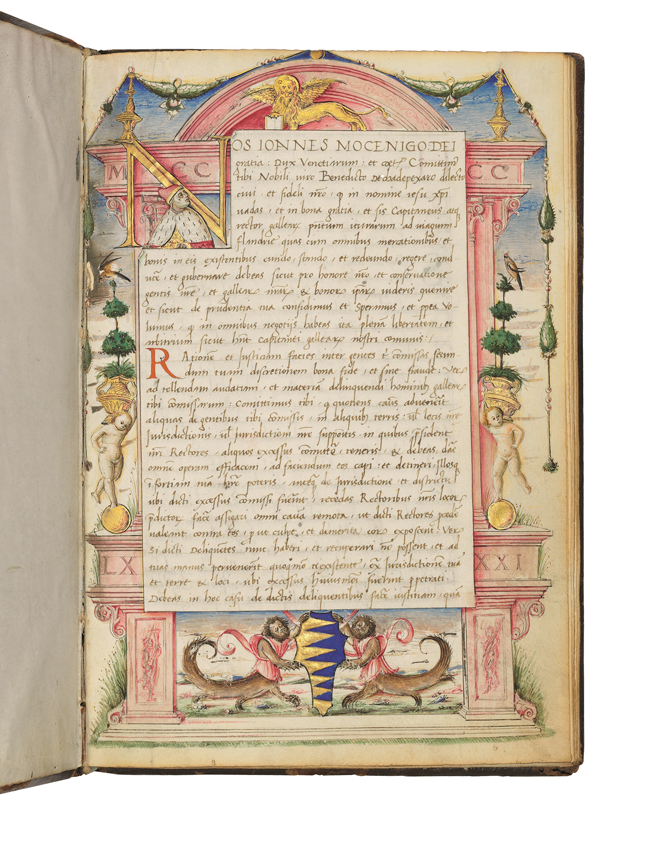 M CCC CC
NOS IONNES MOCENIGO DEI
gratia Dux Venetiarum: et cet Comittim
tibi Nobili viro Benedicto de cha depexaro dilecto
civi, et fideli nro, q in nomine iesu xpi
vadas, et in bona gratia, et sis Capitaneus, atq
rector gallear ptium iturarum ad viagium
flandrie quas cum omnibus mercationibus et
bonis in eis existentibus eundo, stando, et redeundo, regere,
et gubernare debeas sicut pro honore nro, et conservatione
gentis nre, et gallear nrar & bonor ipar videris quenire
et sicut de prudentia tua confidimus et Sperimus, et ppea vo
lumus, q in omnibus negotiis habeas ita plenam libertatem, et
arbitrium sicut hnt capitanei gallear nostri comunis:
Rationem et iustitiam facies inter gentes t comissas secun
dum tuam discretionem bona fide, et sine fraude: Vex
ad tollendam audatiam, et materia delinquendi hominibus gallear
tibi comissarum: Comittimus tibi q quotiens casus advenerit
aliquos de gentibus tibi comissis, in aliquibus terris: vel locis nre
Iurisdictionis, vel Iurisdictioni nre suppositis, in quibus psident
nri Rectores, aliquos excessus comittere, teneris, & debeas, dare
omnem operam efficacem, ad faciendum eos capi, et detineri, Illosq
ubi dicti excessus comissi fuerint, recedas Rectoribus nris locor
pdictor facere assignari omni causa remota, ut dicti Rectores
valeant contra eos, put culpe, et demerita eor exposcent: Ver
Si dicti Deliquentes tunc haberi, et recuperari non possent, et ad
tuas manus pervenerint quoquomodo existentes, ex Iurisdictione tua
et terre & loci, ubi excessus huiusmodi fuerint ppetrati:
Debeas in hoc casu de dictis deliquentibus facere iustitiam, qua
LX XXI